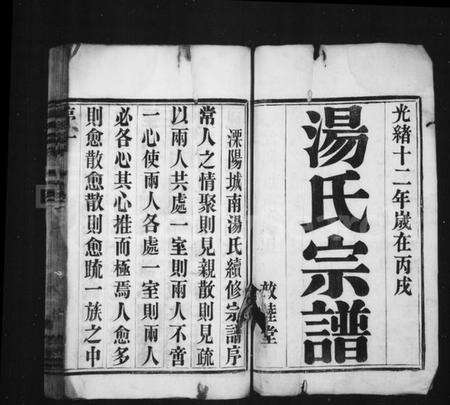 光緒十二年歲在丙戌
湯氏宗譜
敦睦堂
溧陽城南湯氏續修宗譜序
常人之情聚則見親散則見疏
以兩人共處一室則兩人不啻
一心使兩人各處一室則兩人
必各心其心推而極焉人愈多
則愈散愈散則愈疏一族之中